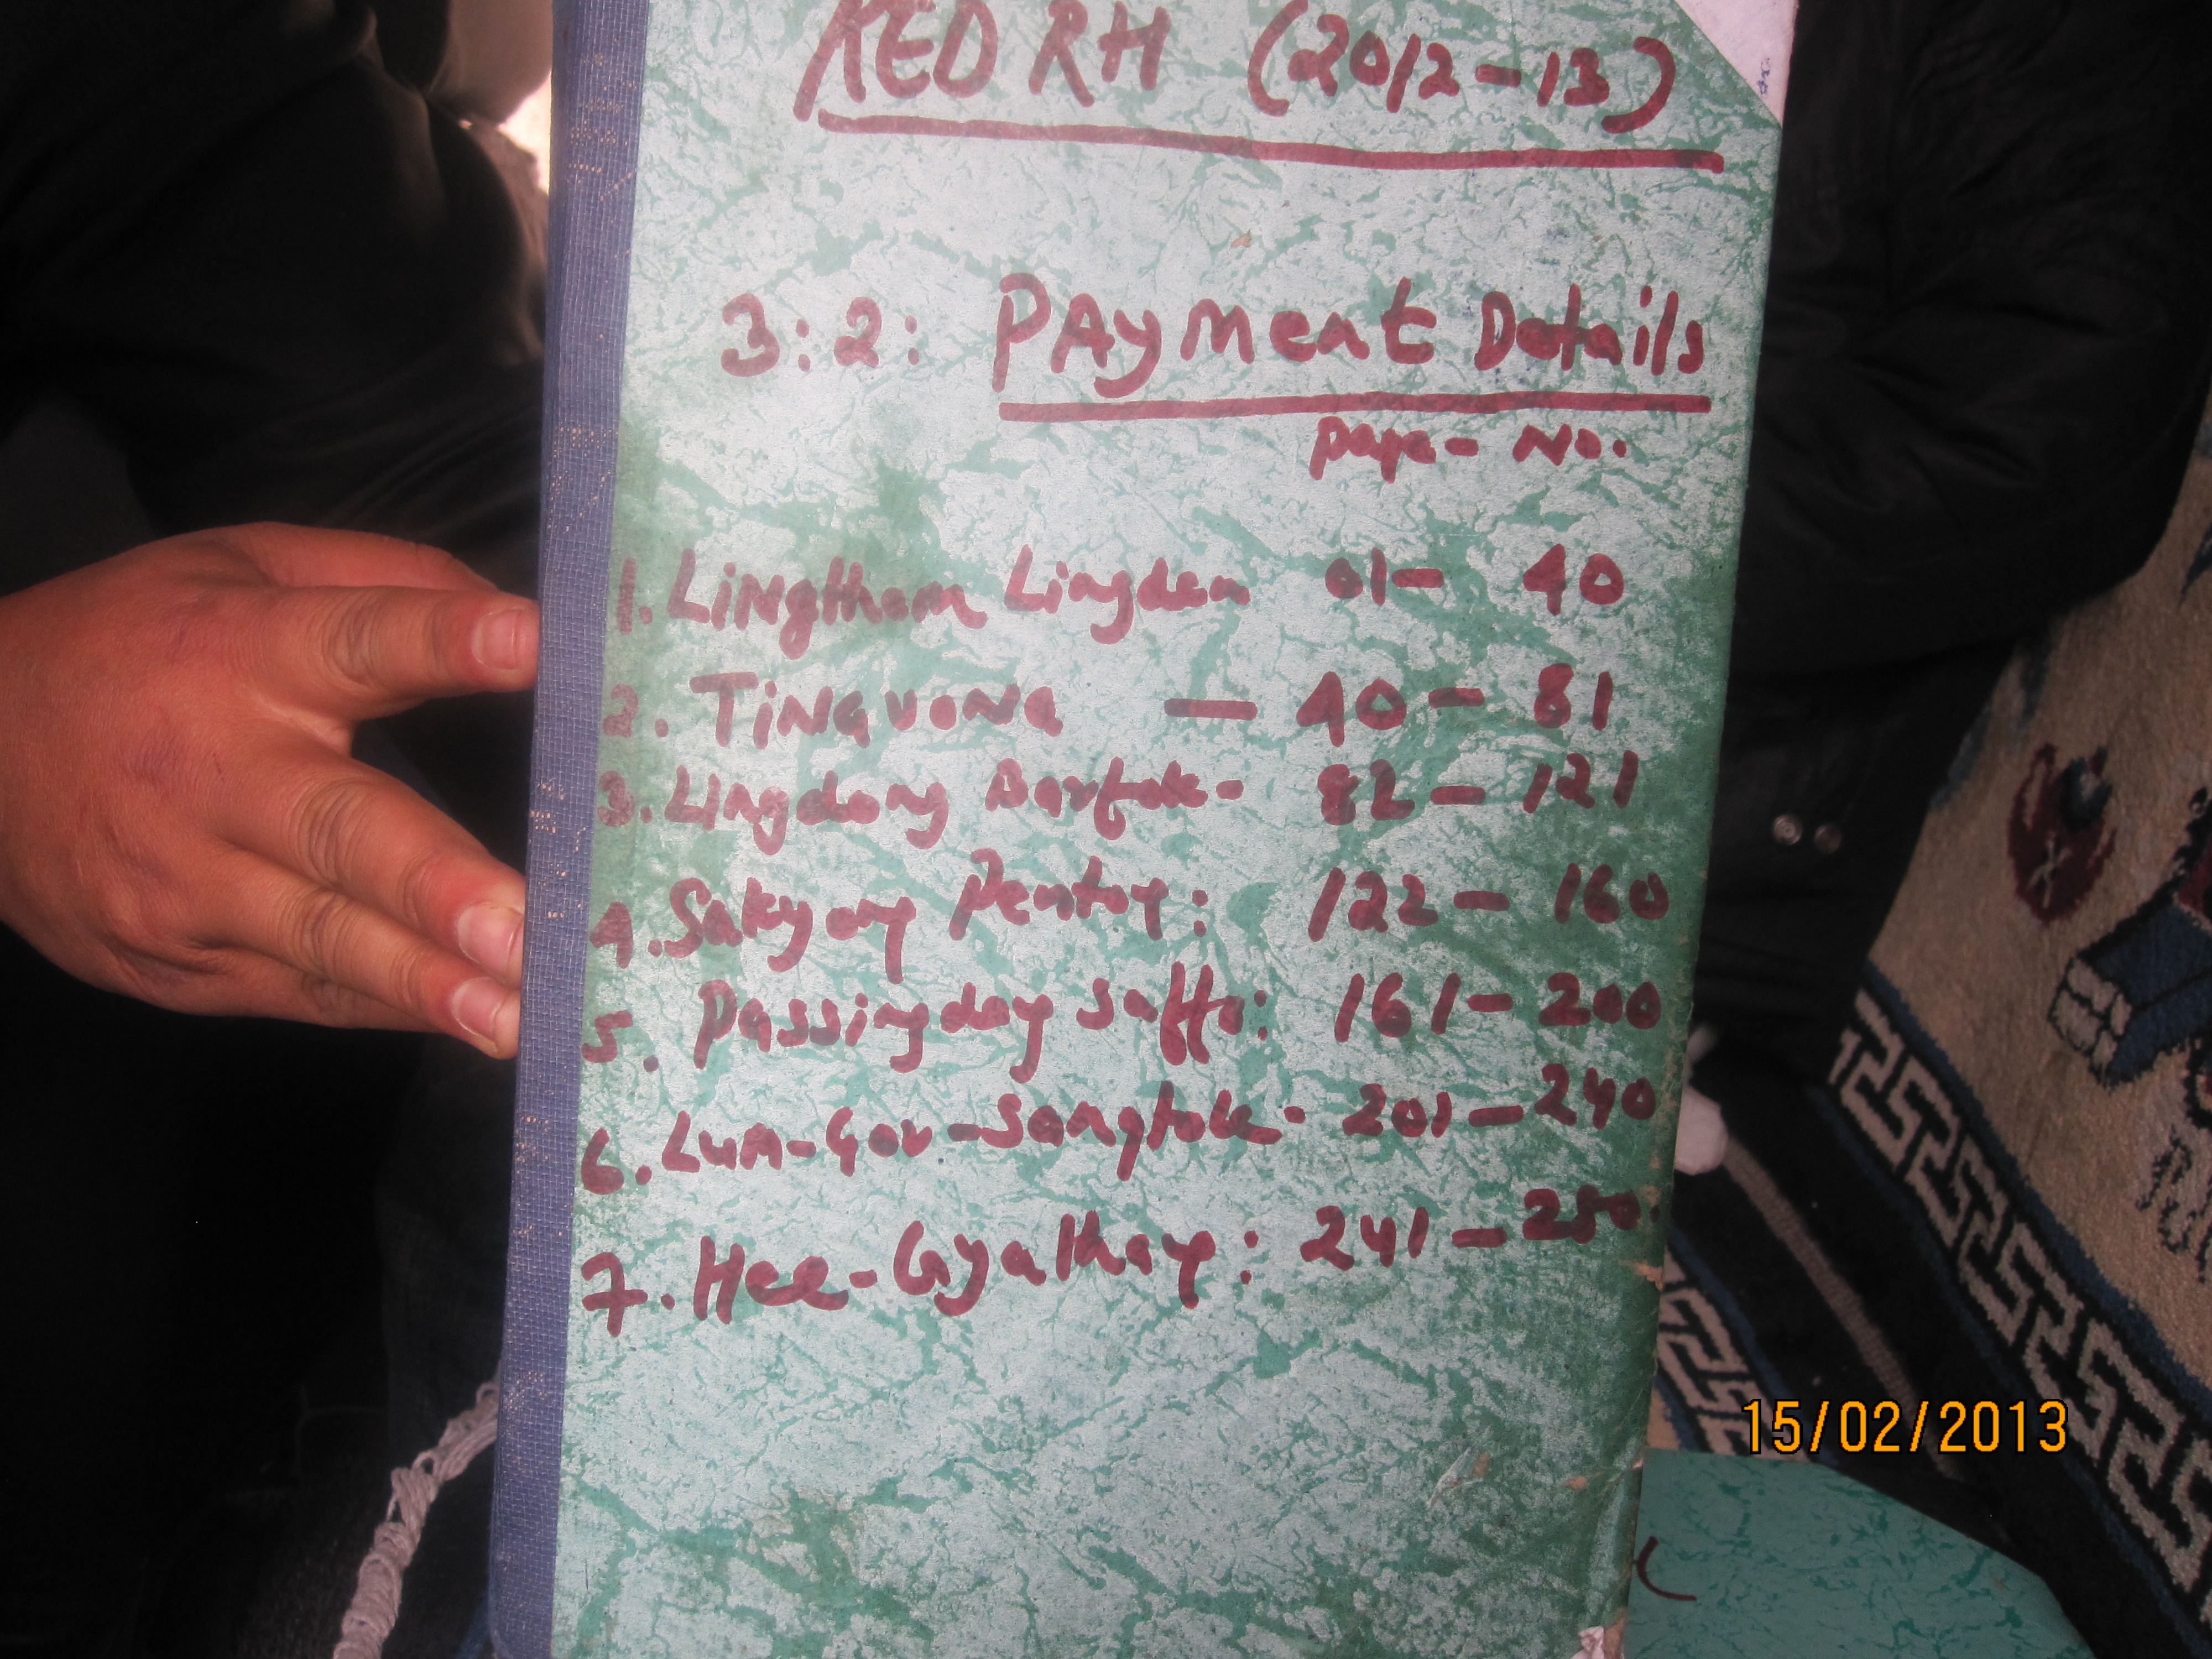 RED RH (2012-13)
3:2: PAyMent Details
page- No.
1. LiNgthem Lingdem 01- 40
2. TiNgvoNg — 40 - 81
3. Lingdong Barfok- 82 - 121
4. Sakyong Pentong: 122 - 160
5. Passingdong Saffo: 161 - 200
6. Lum-Gor-Sangtok- 201 - 240
7. Hee-Gyathang: 241 - 280.
15/02/2013